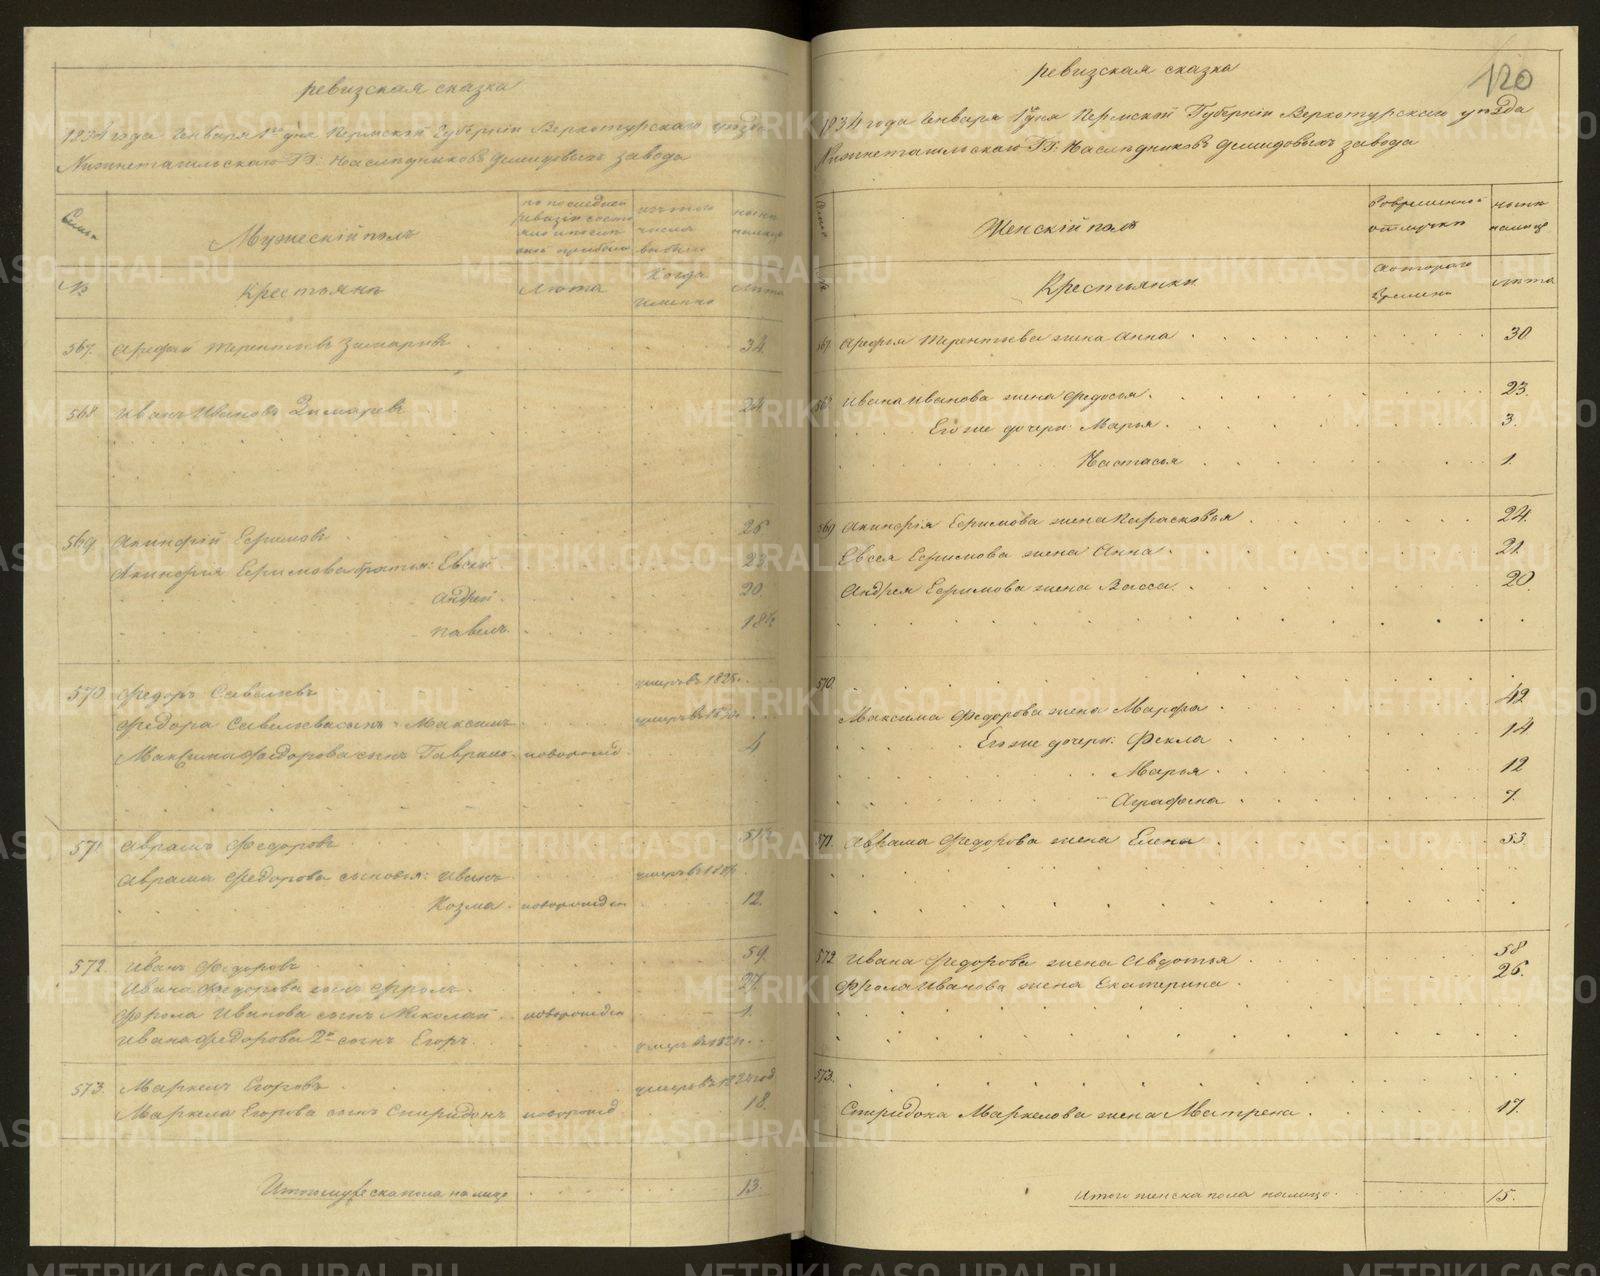 ревизская сказка
1834 года Января 1го дня Пермской Губернiи Верхотурскаго уезда
Нижнетагильскаго ГГ: Наследниковъ Демидовыхъ завода
Семьи
Мужескiй полъ
по последней ревизiи состояло и после оной прибыло
изъ того числа выбыло
ныне налицо
№
Крестьяне
Лета
Когда именно
Лета
567. Арефiй Терентьевъ Зимаревъ 34.
568 Иванъ Ивановъ Зимаревъ 24
569 Акинфiй Ефимовъ 26
Акинфiя Ефимова братья: Евсей 23
Андрей 20
Павелъ 18½
570 Федоръ Савельевъ умеръ въ 1825
Федора Савельева сынъ Максимъ умеръ въ
Максима Федорова сынъ Гаврило новорожд 4
571 Аврамъ Федоровъ 51
Аврама Федорова сыновья: Иванъ умеръ въ
Козма новорожден 12.
572. Иванъ Федоровъ 59.
Ивана Федорова сынъ Фролъ 27.
Фрола Иванова сынъ Николай новорожден 1
Ивана Федорова 2й сынъ Егоръ умеръ въ
573. Маркелъ Егоровъ умеръ въ год
Маркела Егорова сынъ Спиридонъ новорожд 18.
Итого мужеска пола налицо 13.
120
ревизская сказка
1834 года Января 1го дня Пермской Губернiи Верхотурскаго уезда
Нижнетагильскаго ГГ: Наследниковъ Демидовыхъ завода
Семьи
Женскiй полъ
Во временной отлучке
ныне налицо
№
Крестьянки
съ котораго времени
лета
567 Арефья Терентьева жена Анна 30.
568 Ивана Иванова жена Федосья 23.
Его же дочери: Марья 3.
Настасья 1.
569 Акинфiя Ефимова жена Парасковья 24.
Евсея Ефимова жена Анна 21.
Андрея Ефимова жена Васса 20.
570.
Максима Федорова жена Марфа 42
Его же дочери: Фекла 14
Марья 12
Аграфена 7.
571. Аврама Федорова жена Елена 53.
572 Ивана Федорова жена Авдотья 58
Фрола Иванова жена Екатерина 26.
573.
Спиридона Маркелова жена Матрена 17.
Итого женска пола налицо 15.
METRIKI.GASO-URAL.RU